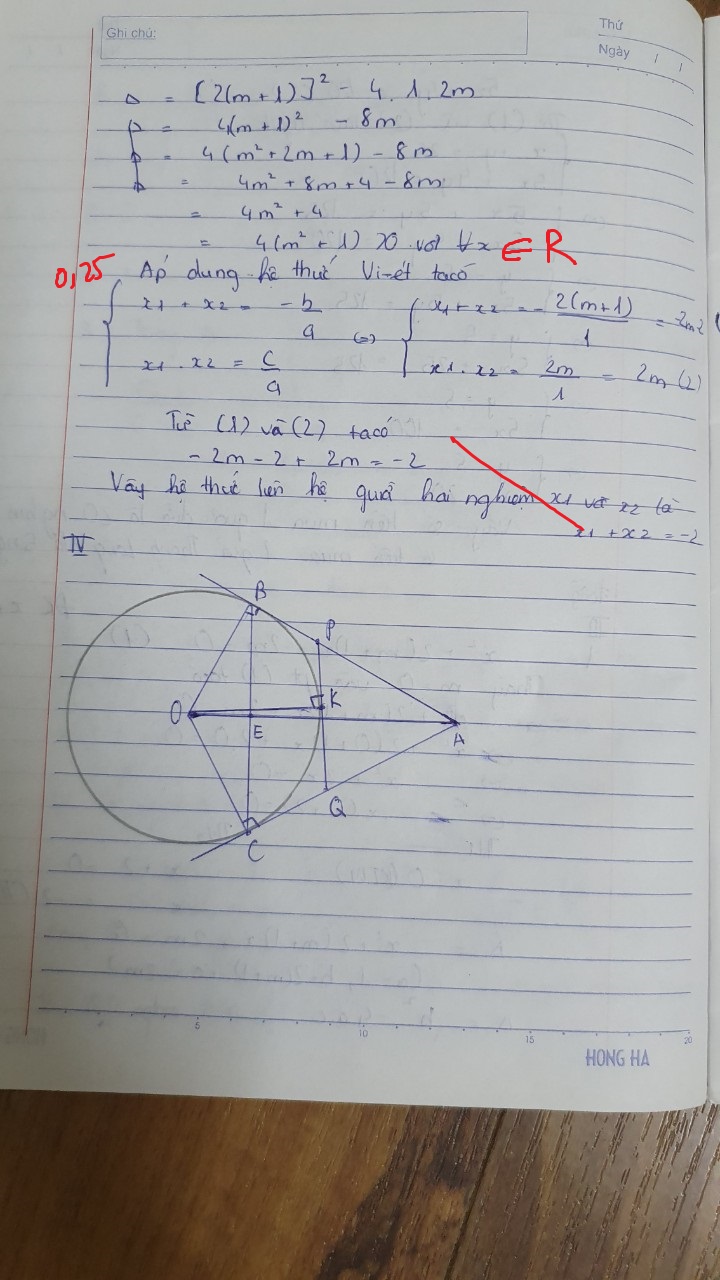 Ghi chú:
Thứ
Ngày / /
Δ = [2(m+1)]² - 4.1.2m
= 4(m+1)² - 8m
= 4(m²+2m+1) - 8m
= 4m² + 8m + 4 - 8m
= 4m² + 4
= 4(m²+1) >0 với ∀x ∈ R
0,25 Áp dung hệ thức Vi-ét ta có
x1 + x2 = -b/a (=) x1+x2 = -2(m+1)/1 = -2m-2 (
x1 . x2 = c/a x1.x2 = 2m/1 = 2m (2)
Từ (1) và (2) ta có
- 2m - 2 + 2m = -2
Vậy hệ thức liên hệ giữa hai nghiệm x1 và x2 là
x1 + x2 = -2
IV
B
P
O K
E A
Q
C
5 10 15 20
HONG HA